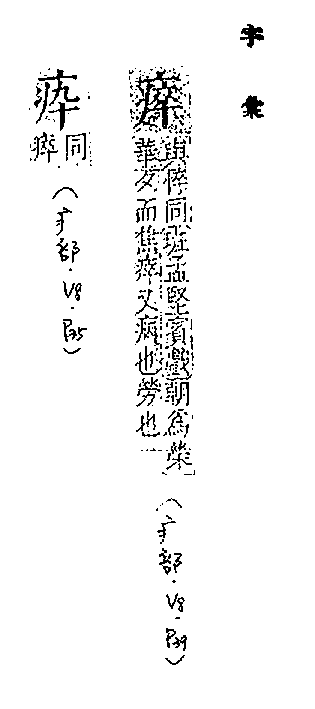 字彙
瘁
與悴同班孟堅賓戲朝爲榮
華夕而憔瘁又病也勞也
(疒部.V8.P29)
疩
同
瘁
(疒部.V8.P25)